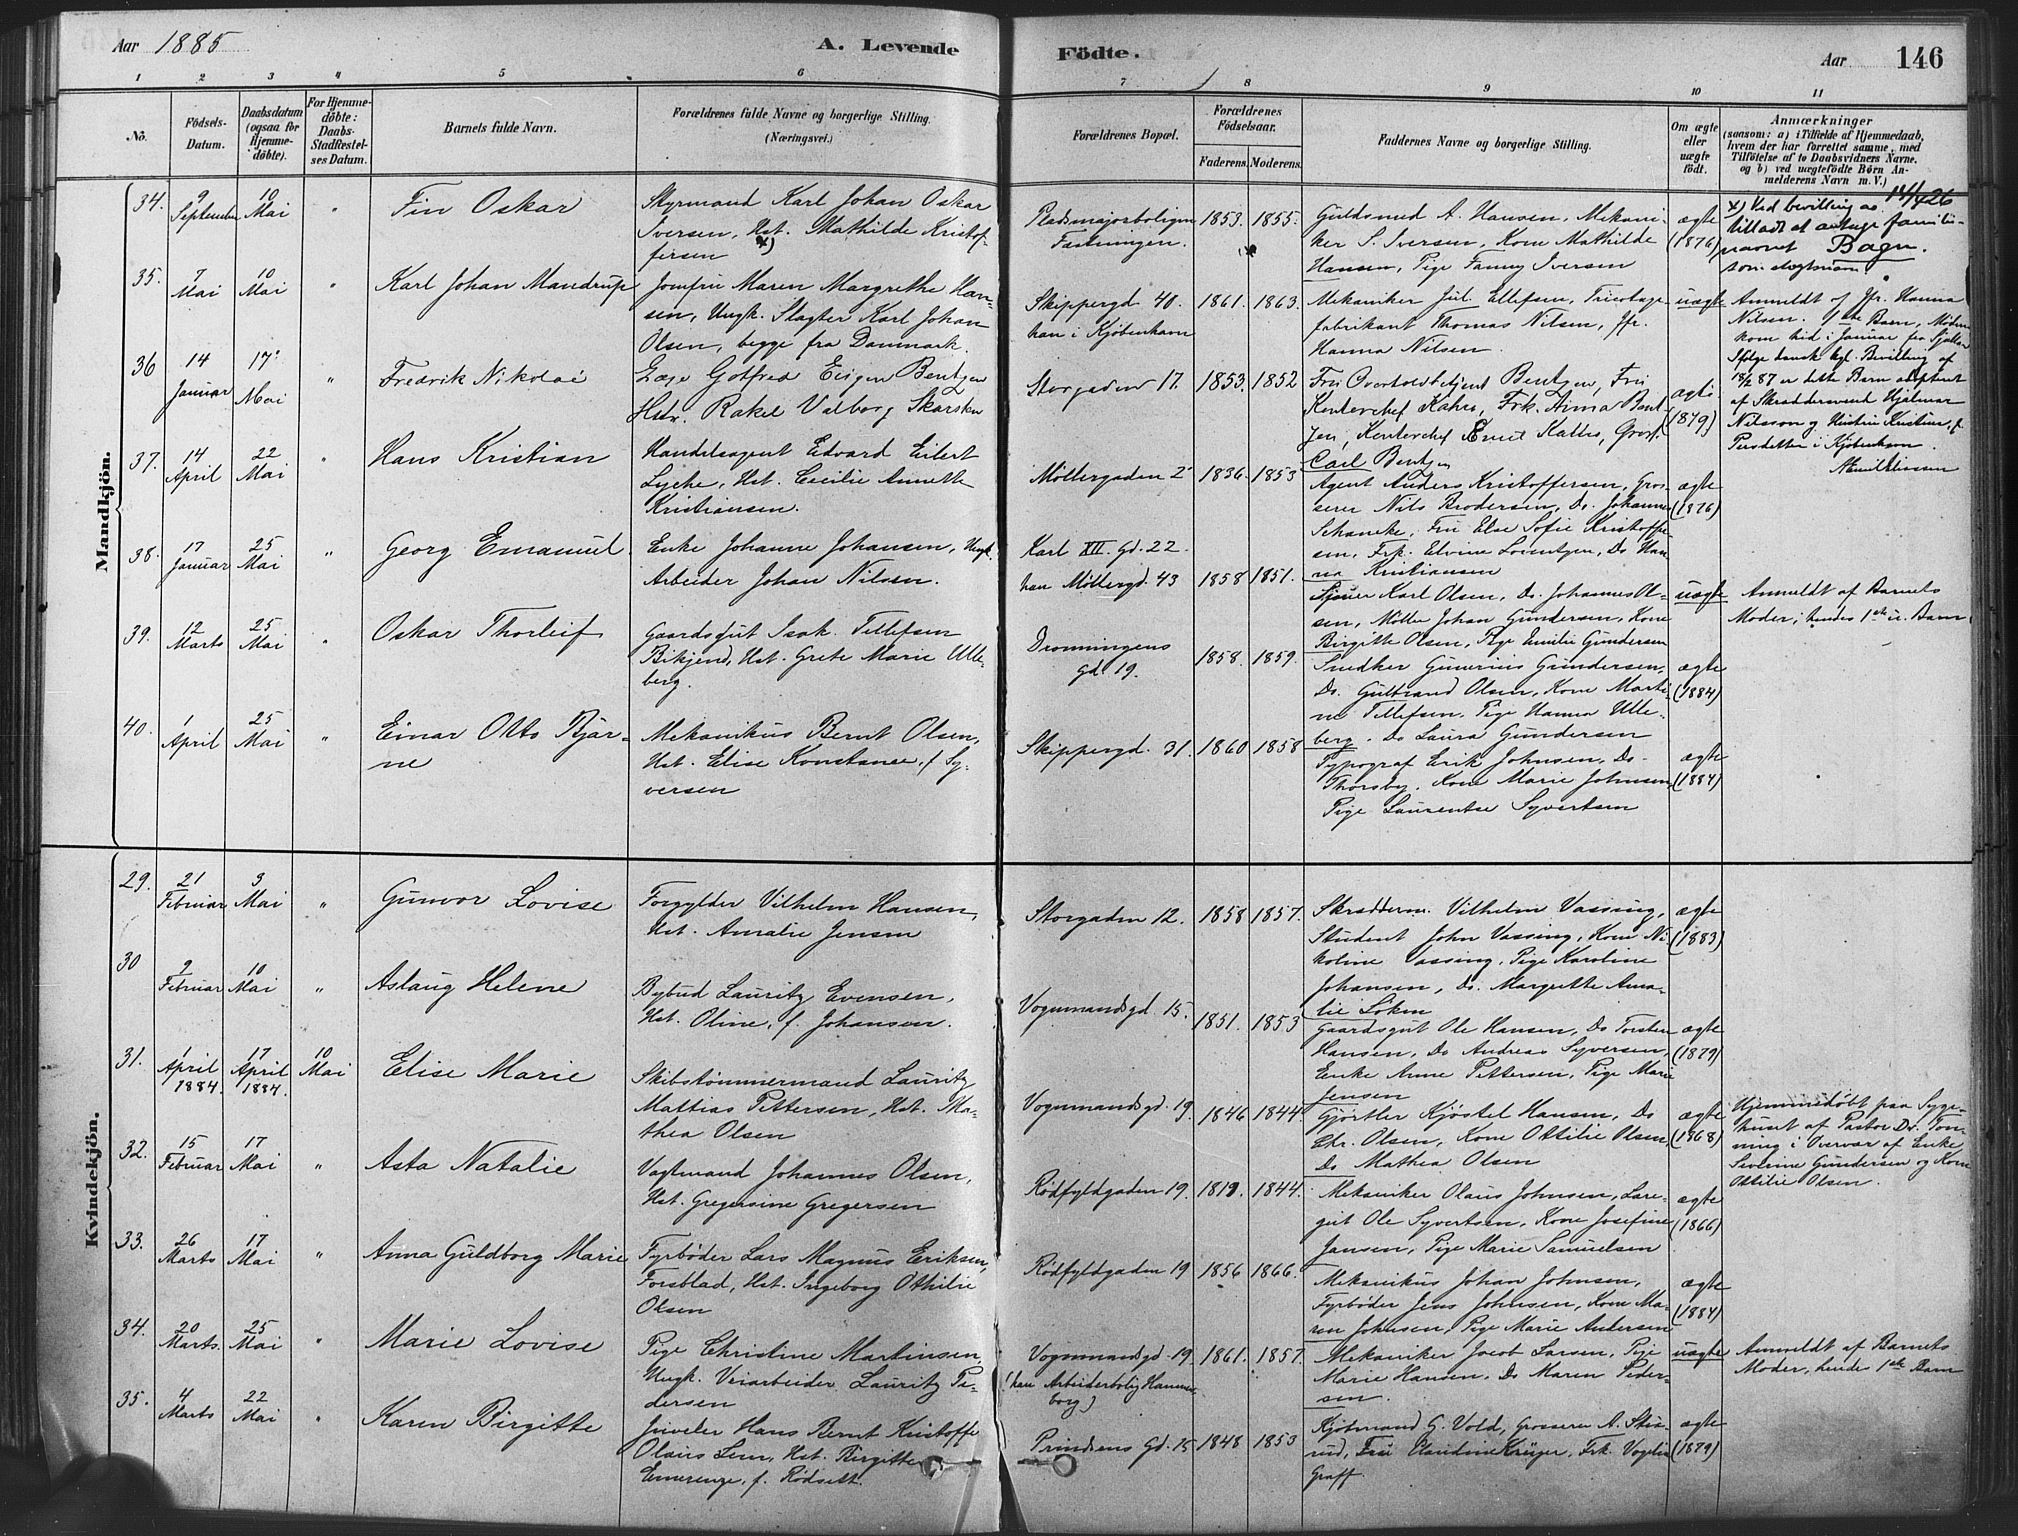 Aar 1885
A. Levende
Födte.
Aar
146
1 2 3 4 5 6 7 8 9 10 11
No.
Födsels-
Datum.
Daabsdatum
(ogsaa for
Hjemme-
döbte).
For Hjemme-
döbte:
Daabs-
Stadfæstel-
ses Datum.
Barnets fulde Navn.
Forældrenes fulde Navne og borgerlige Stilling.
(Næringsvei.)
Forældrenes Bopæl.
Forældrenes
Födselsaar.
Faderens. Moderens.
Faddernes Navne og borgerlige Stilling.
Om ægte
eller
uægte
födt.
Anmærkninger
(saasom: a) i Tilfælde af Hjemmedaab,
hvem der har forrettet samme, med
Tilföielse af to Daabsvidners Navne.
og b) ved uægtefödte Börn An-
melderens Navn m. V.)
Mandkjön.
34.
9
September
10
Mai
"
Fin Oskar
Styrmand Karl Johan Oskar
Iversen, Hst. Mathilde Kristof-
fersen x)
Pladsmajorboligen
Fæstningen.
1853. 1855.
Guldsmed A. Hansen, Mekani-
ker S. Iversen, Kone Mathilde
Hansen, Pige Fanny Iversen
ægte
(1876)
x) Ved bevilling av 14/4 26
tilladt at antage familie-
navnet Bagn.
som slegtsnavn.
35.
7
Mai
10
Mai
"
Karl Johan Mandrup
Jomfru Maren Margrethe Han-
sen, Ungk. Slagter Karl Johan
Olsen, begge fra Danmark.
Skippergd 40.
han i Kjöbenhavn
1861. 1863.
Mekaniker Jul. Ellefsen, Tricotage-
fabrikant Thomas Nilsen, Jfr.
Hanna Nilsen.
uægte
Anmeldt af Jfr. Hanna
Nilsen. 1ste Barn, Moderen
kom hid i Januar fra Sjælland
Ifølge dansk kgl. Bevilling af
18/2 87 er dette Barn adopteret
af Skræddersvend Hjalmar
Nilsson og Hustru Kristine, f.
Persdatter i Kjøbenhavn.
36
14
Januar
17
Mai
"
Fredrik Nikolai
Læge Gotfred Eugen Bentzen
Hstr. Rakel Valborg Skarsten
Storgaden 17.
1853. 1852
Fru Overtoldbetjent Bentzen, Fru
Kontorchef Kahrs, Frk. Anna Bent-
zen, Kontorchef Emil Kahrs, Gross.
Carl Bentzen
ægte
(1879)
37.
14
April
22
Mai
"
Hans Kristian
Handelsagent Edvard Eilert
Lyche, Hst. Cecilie Annette
Kristiansen.
Möllergaden 2
1836. 1853
Agent Anders Kristoffersen, Gros-
serer Nils Brodersen, Do. Johannes
Schancke, Fru Else Sofie Kristoffer-
sen, Frk. Elvine Lorentzen, Do Han-
na Kristiansen
ægte
(1876)
38.
17
Januar
25
Mai
"
Georg Emanuel
Enke Johanne Johansen, Ungk.
Arbeider Johan Nilsen.
Karl XII. Gd. 22.
han Möllergd. 43
1858 1851.
Sjouer Karl Olsen, Do. Johannes Ol-
sen, Möller Johan Gundersen, Kone
Birgitte Olsen, Pige Emilie Gundersen
uægte
Anmeldt af Barnets
Moder; hendes 1ste u. Barn
39.
12
Marts
25
Mai
"
Oskar Thorleif
Gaardsgut Isak Tellefsen
Bikjend, Hst. Grete Marie Ulle-
berg.
Dronningens
Gd 19.
1858. 1859.
Snedker Gunerius Gundersen,
Do. Gulbrand Olsen, Kone Marti-
ne Tellefsen, Pige Hanna Ulle-
berg. Do Laura Gundersen
ægte
(1884)
40.
1
April
25
Mai
"
Einar Otto Bjar-
ne
Mekanikus Bernt Olsen,
Hst. Elise Konstanse, f. Sy-
versen
Skippergd. 31.
1860 1858
Typograf Erik Johnsen, Do.
Thorsby, Kone Marie Johnsen,
Pige Laurentse Syvertsen
ægte
(1884)
Kvindekjön.
29.
21
Februar
3
Mai
"
Gunvor Lovise
Forgylder Vilhelm Hansen,
Hst. Amalie Jensen
Storgaden 12.
1858 1857.
Skrædderm. Vilhelm Vassing,
Student John Vassing, Kone Ni-
koline Vassing, Pige Karoline
Johansen, Do. Margrethe Ama-
lie Löken
ægte
(1883)
30
9
Februar
10
Mai
"
Aslaug Helene
Bybud Lauritz Evensen,
Hst. Oline, f. Johansen.
Vognmandsgd. 15.
1851. 1853
Gaardsgut Ole Hansen, Do Torsten
Hansen, Do Andreas Syversen,
Enke Anne Pettersen, Pige Marie
Jensen
ægte
(1879)
31.
1
April
1884.
17
April
1884.
10
Mai
Elise Marie
Skibstömmermand Lauritz
Mattias Pettersen, Hst. Ma-
thea Olsen
Vognmandsgd. 19.
1846 1844
Gjörtler Kjöstel Hansen, Do
Chr. Olsen, Kone Ottilie Olsen
Do Mathea Olsen
ægte
(1868)
Hjemmedøbt paa Syge-
huset af Pastor Dr. Tön-
ning i Overvær af Enke
Severine Gundersen og Kone
Ottilie Olsen.
32.
15
Februar
17
Mai
"
Asta Natalie
Vagtmand Johannes Olsen,
Hst. Gregersine Gregersen
Rödfyldgaden 19.
1819. 1844.
Mekaniker Olaus Johnsen, Lære-
gut Ole Syvertsen, Kone Josefine
Jansen, Pige Marie Samuelsen
ægte
(1866)
33.
26
Marts
17
Mai
"
Anna Guldborg Marie
Fyrböder Lars Magnus Eriksen
Forsblad, Hst. Ingeborg Othilie
Olsen
Rödfyldgaden 19
1856 1866.
Mekanikus Johan Johnsen,
Fyrböder Jens Johnsen, Kone Ma-
ren Johnsen, Pige Marie Andersen
ægte
(1884)
34.
20
Marts.
25
Mai
"
Marie Lovise
Pige Christine Martinsen
Ungk. Veiarbeider Lauritz Pe-
dersen
Vognmandsgd. 19.
(han Arbeiderbolig Hammers-
borg)
1861. 1857.
Mekaniker Jacob Larsen, Pige
Marie Hansen, Do Maren Peder-
sen.
uægte
Anmeldt af Barnets
Moder, hendes 1ste Barn
35.
4
Marts
22
Mai
"
Karen Birgitte
Juveler Hans Bernt Kristoffer
Olaus Lem, Hst. Birgitte
Emerenze, f. Rödsett.
Prindsens Gd. 15
1848 1853
Kjöbmand G. Vold, Grosserer A. Stix-
rud, Fru Claudine Krüger, Frk. Vogelia
Graff.
ægte
(1879)